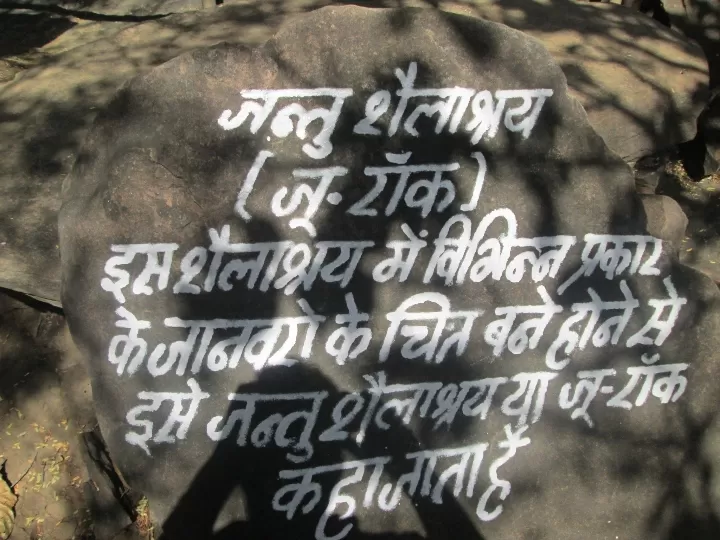 जन्तु शैलाश्रय
(जू- रॉक)
इस शैलाश्रय में विभिन्न प्रकार
के जानवरो के चित्र बने होने से
इसे जन्तु शैलाश्रय या जू-रॉक
कहा जाता है